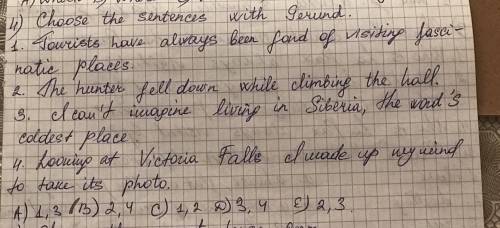 4) Choose the sentences with Gerund.
1. Tourists have always been fond of visiting fasci-
natic places.
2. The hunter fell down while climbing the hall.
3. I can't imagine living in Siberia, the word's
coldest place.
4. Looking at Victoria Falls I made up my mind
to take its photo.
A) 1, 3 B) 2, 4 C) 1, 2 D) 3, 4 E) 2, 3.